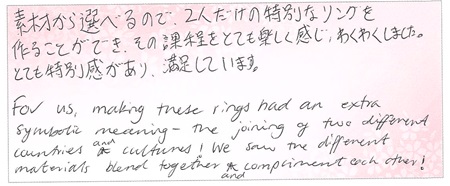 素材から選べるので、2人だけの特別なリングを
作ることができ、その課程をとても楽しく感じ、わくわくしました。
とても特別感があり、満足しています。
For us, making these rings had an extra
symbolic meaning - the joining of two different
countries and cultures! We saw the different
materials blend together and compliment each other!